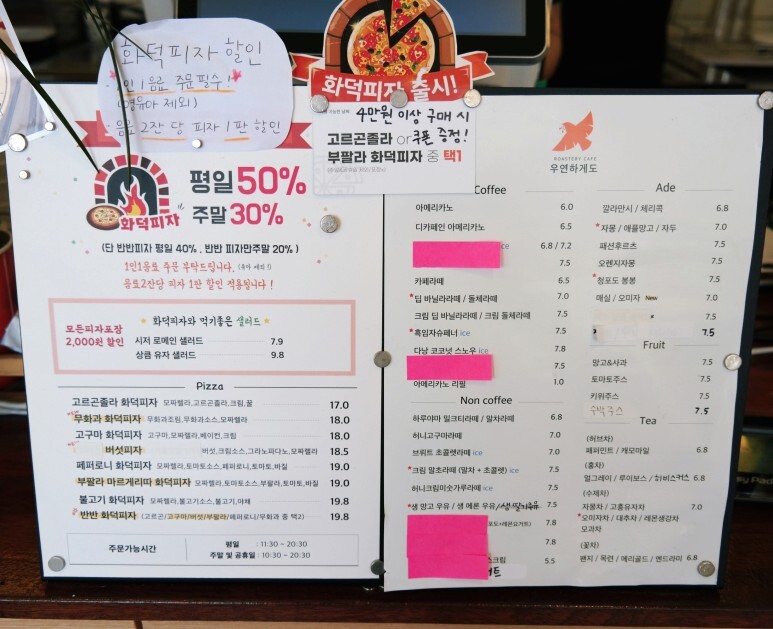 화덕피자 할인
· 1인 1음료 주문필수!
(영유아 제외)
· 음료 2잔 당 피자 1판 할인
화덕피자 출시!
4만원 이상 구매 시
고르곤졸라 or 쿠폰 증정!
부팔라 화덕피자 중 택1
화덕피자
평일 50%
주말 30%
(단 반반피자 평일 40% , 반반 피자만주말 20% )
1인1음료 주문 부탁드립니다. (유아 제외!)
음료2잔당 피자 1판 할인 적용됩니다!
모든피자포장
2,000원 할인
화덕피자와 먹기좋은 샐러드
시저 로메인 샐러드 7.9
상큼 유자 샐러드 9.8
Pizza
고르곤졸라 화덕피자 모짜렐라,고르곤졸라,크림,꿀 17.0
무화과 화덕피자 무화과조림,무화과소스,모짜렐라 18.0
고구마 화덕피자 고구마,모짜렐라,베이컨,크림 18.0
버섯피자 버섯,크림소스,그라노파다노,모짜렐라 18.5
페퍼로니 화덕피자 모짜렐라,토마토소스,페퍼로니,토마토,바질 19.0
부팔라 마르게리따 화덕피자 모짜렐라,토마토소스,부팔라,토마토,바질 19.0
불고기 화덕피자 모짜렐라,불고기소스,불고기,야채 19.8
반반 화덕피자 (고르곤/고구마/버섯/부팔라/페퍼로니/무화과 중 택2) 19.8
주문가능시간
평일 : 11:30 ~ 20:30
주말 및 공휴일 : 10:30 ~ 20:30
ROASTERY CAFE
우연하게도
Coffee
아메리카노 6.0
디카페인 아메리카노 6.5
ice 6.8 / 7.2
7.5
카페라떼 6.5
*딥 바닐라라떼 / 돌체라떼 7.0
크림 딥 바닐라라떼 / 크림 돌체라떼 7.5
*흑임자슈페너 ice 7.5
다낭 코코넛 스노우 ice 7.8
7.5
아메리카노 리필 1.0
Non coffee
하루이마 밀크티라떼 / 말차라떼 6.8
허니고구마라떼 7.0
브뤼트 초콜렛라떼 ice 7.0
*크림 말초라떼 (말차 + 초콜렛) ice 7.5
허니크림미숫가루라떼 ice 7.5
*생 망고 우유 / 생 메론 우유 7.5
7.8
7.8
5.5
Ade
깔라만시 / 체리콕 6.8
*자몽 / 애플망고 / 자두 7.0
패션후르츠 7.5
오렌지자몽 7.5
*청포도 봉봉 7.5
매실 / 오미자 New 7.0
x x
7.5
Fruit
망고&사과 7.5
토마토주스 7.5
키위주스 7.5
수박주스 7.5
Tea
(허브차)
페퍼민트 / 캐모마일 6.8
(홍차)
얼그레이 / 루이보스 / 히비스커스 6.8
(수제차)
자몽차 / 고흥유자차 7.0
*오미자차 / 대추차 / 레몬생강차
모과차
(꽃차)
팬지 / 목련 / 메리골드 / 맨드라미 6.8